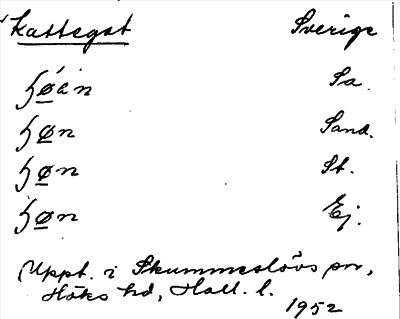 Kattegat Sverige
ʒø̲án Sa.
ʒø̲n Sand.
ʒø̲n St.
ʒø̲n Ej.
Uppt. i Skummeslövs sn,
Höks hd, Hall. l.
1952